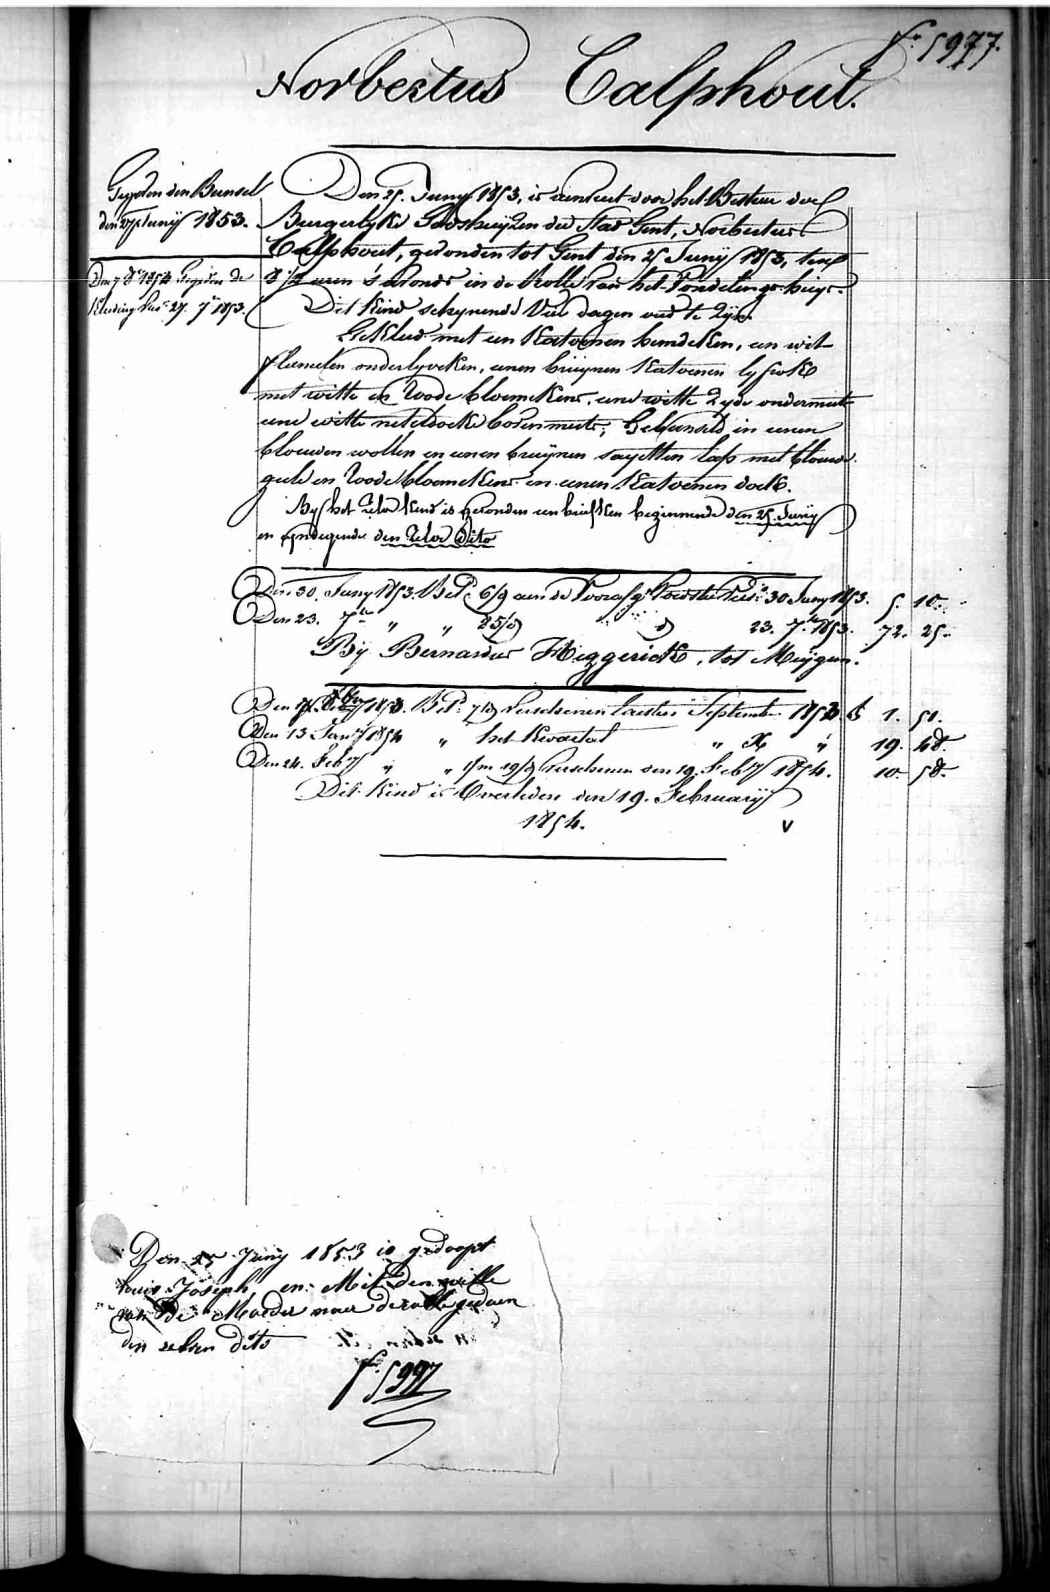 f.º 5977.
Norbertus Calphout.
Gegeven den Bunsel
den 27 Junij 1853.
Den 7 8.e 1854 Gegeven de
Kleeding 27. 7.e 1853.
Den 25. Juny 1853, is aenveert door het Bestuer der
Burgerlyke Godshuyzen der Stad Gent, Norbertus
Calphout, gevonden tot Gent den 25 Junij 1853, ten
8 1/2 uren 's avonds in de Rolle van het Vondelings-huys.
Dit Kind schynende Vier dagen oud te Zyn.
Gekleed met een Katoenen hemdeken, een wit
flanelen onderlyveken, eenen bruynen Katoenen lyfrok
met witte en Roode bloemekens, eene witte Zyde ondermuts
eene witte neteldoeke bovenmuts; Gebunseld in eenen
blouwen wollen en eenen bruynen sayetten lap met blouwe
geele en Roode bloemekens en eenen Katoenen doek.
By het Zelve Kind is gevonden een briefken beginnende den 25 Junij
en eyndigende den Zelve Dito
Den 30. Juny 1853. Bet. 6/9 aen de Voorsz. 30 Juny 1853. 5. 10.
Den 23. 7.e " " 85/9 23. 7.e 1853. 72. 25.
By Bernardus Heggerick, tot Meygem.
Den 1853. Bet. 7/9 verschenen laesten September 1853. 1. 51.
Den 13 Jan.y 1854 " het Kwartael " X " 19. 48.
Den 24. Feb.y " " 19/9 verschenen den 19. Feb.y 1854. 10. 58.
Dit Kind is Overleden den 19. February
1854.
Den 25 Junij 1853 is gedoopt
Louis Joseph en Met Den wille
van De Moeder naer de rolle gedaen
den zelven dito
f.º 5997